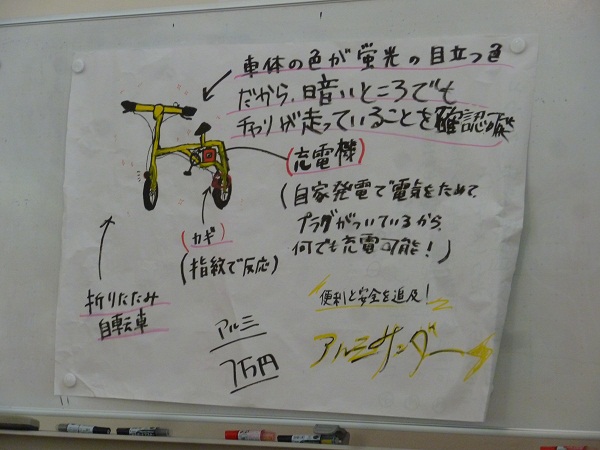 車体の色が蛍光の目立つ色
だから、暗いところでも
チャリが走っていることを確認可能
(充電機)
(自家発電で電気をためて、
プラグがついているから、
何でも充電可能!)
(カギ)
(指紋で反応)
折りたたみ
自転車
便利と安全を追及!
アルミ
7万円
アルミサンダー